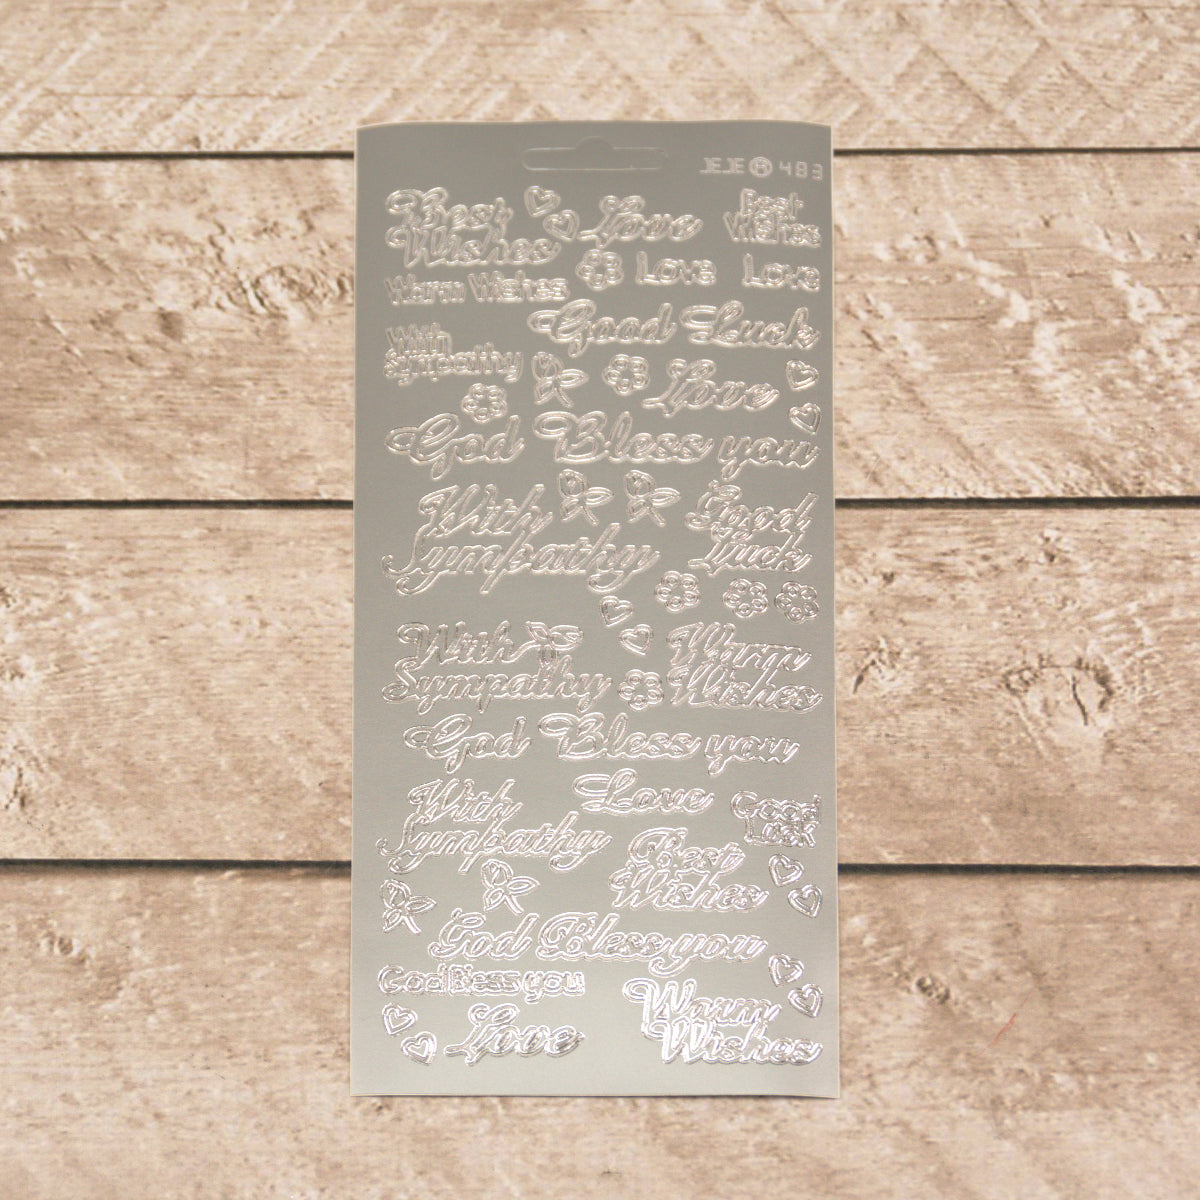 JEJE ® 483
Best
Wishes
Love
Best
Wishes
Love
Love
Warm Wishes
Good Luck
With
Sympathy
Love
God Bless you
With
Sympathy
Good
Luck
With
Sympathy
Warm
Wishes
God Bless you
With
Sympathy
Love
Good
Luck
Best
Wishes
God Bless you
God Bless you
Love
Warm
Wishes